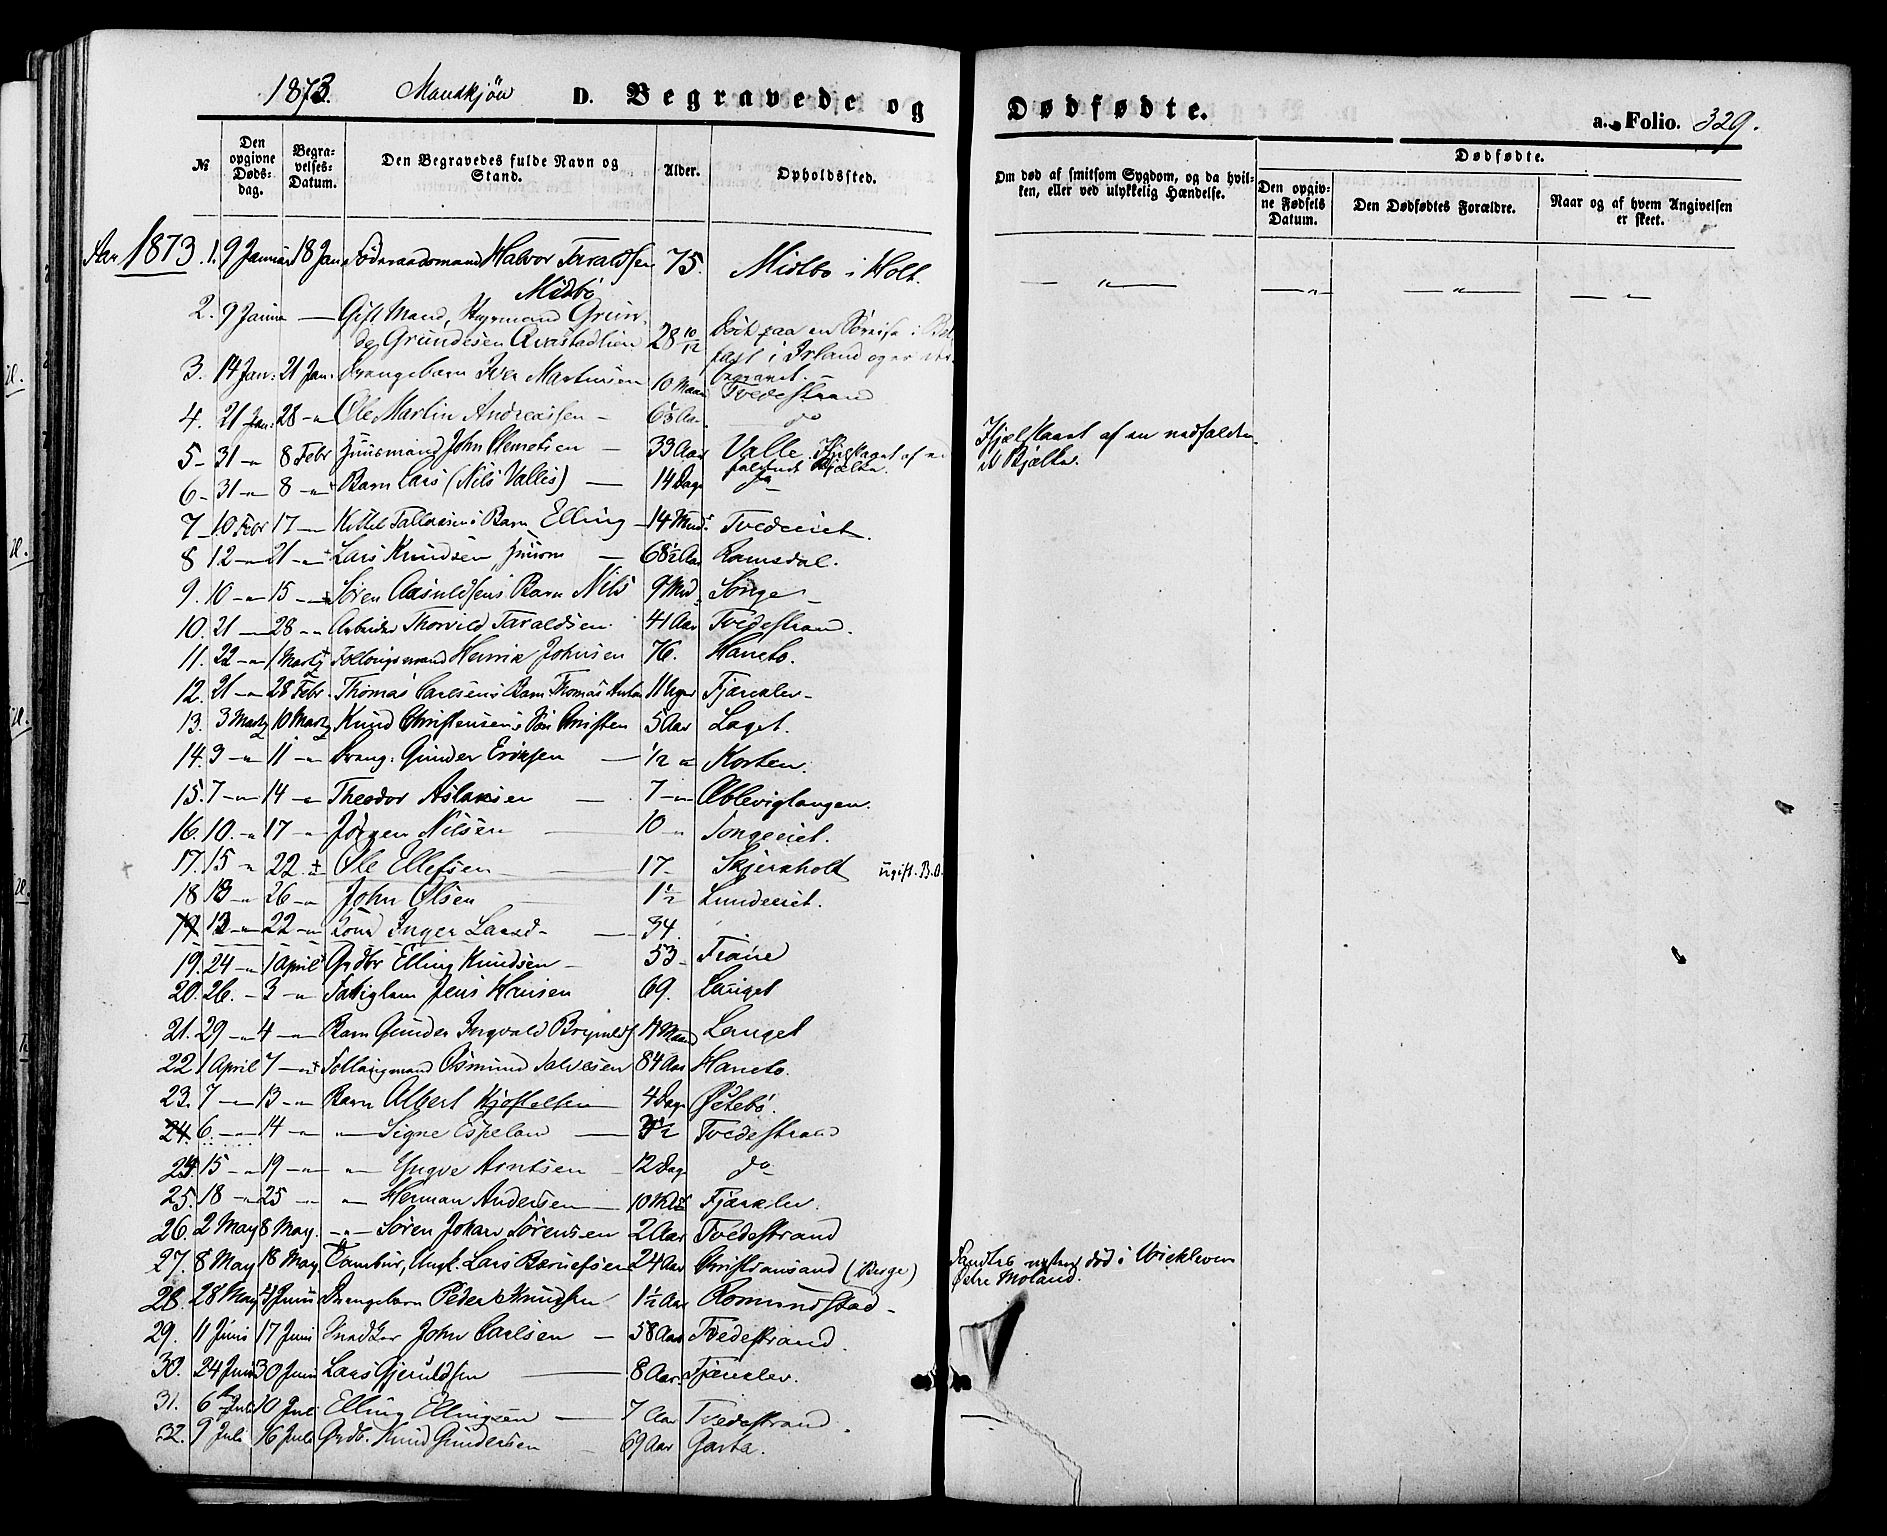 1873. Mandkjøn D. Begravede og Dødfødte. a. Folio. 329.
№ Den opgivne Døds-dag. Begra-velses-Datum. Den Begravedes fulde Navn og Stand. Alder. Opholdssted. Om død af smitsom Sygdom, og da hvil-ken, eller ved ulykkelig Hændelse. Dødfødte. Den opgiv-ne Fødsels Datum. Den Dødfødtes Forældre. Naar og af hvem Angivelsen er skeet.
Aar 1873 1. 9 Januar 18 Jan Føderaadsmand Halvor Taraldsen Midbø 75. Midbø i Holt.
2. 9 Januar — Gift Mand, Styrmand Grun-
de Grundesen 28 10/12 Død paa en Søreise i Bel-
fast i Irland og er der
begravet.
3. 14 Jan: 21 Jan: Drangebarn Iver Martinsen 10 Maan Tvedestrand
4. 21 Jan: 28 -"- Ole Martin Andreassen - Aar. do
5- 31 -"- 8 Febr Huusmand John Clemetsen - 33 Aar Valle. Ihjelslaget af ned
faldende Bjælke. Ihjelslaaet af en nedfalden
Bjælke.
6- 31 -"- 8 -"- Barn Lars (Nils Valles) — 14 Dage do
7- 10 Febr 17 -"- Kittel Tallaksens Barn Elling - 14 Mnd: Tvedeeiet.
8 12 -"- 21 -"- Lars Knudsen, Huusm — 68½ Aar Ramsdal.
9. 10 -"- 15 -"- Søren Aasuldsens Barn Nils 9 Mnd Songe -
10. 21 — 28 -"- Arbeider Thorvild Taraldsen. 41 Aar Tvedestrand.
11. 22 -"- 1 Marts Henrik Johnsen 76. Haneto.
12. 21 -"- 28 Febr. Thomas Carlsens Barn Thomas Anton 11 Uger Fjærklev-
13. 3 Marts 10 Marts Knud Christensens Søn Christen 5 Aar Laget.
14. 3 -"- 11 -"- Drang: Gunder Eriksen — ½ " Korten.
15. 7 -"- 14 -"- Theodor Aslaksen — 7 -"- Æblevigtangen.
16. 10. -"- 17 -"- Jørgen Nilsen — 10 " Songeeiet.
17. 15 " 22. Ole Ellefsen — 17- Skjerkholt ugift. B.O.
18 13 -"- 26 -"- John Olsen 1½ Lundeeiet.
19 13 -"- 22 -"- Kone Inger Larsd- — 34.
19. 24 -"- 1 April Grdbr Elling Knudsen - 53-
20. 26. - 3 -"- Fattiglem Jens Hansen 69. Lauget
21. 29 -"- 4 -"- Barn Gunder Ingvald Brynulds. 4 Maaned Lauget
22 1 April 7 -"- Osmund Salvesen 84 Aar Haneto.
23. 7 -"- 13 -"- Barn Albert Kjostelsen 4 Dage Østebø.
24. 6. -"- 14 -"- " Signe Espeland — 3½ Tvedestrand
24. 15 -"- 19 -"- " Yngve Arntsen - 12 Dag do
25. 18 -"- 25 -"- " Herman Andersen — 10 Fjærklev.
26. 2 May 8 May. -"- Søren Johan Sørensen 2 Aar Tvedestrand
27. 8 May 18 May Tambur, Ungk. Lars 24 Aar Christiansand (Berge) død i
Østre Moland.
28. 28 May 4 Juni Drangebarn Peder Knudsen 1½ Aar Romundstad -
29. 11 Juni 17 Juni Snedker John Carlsen — 58 Aar Tvedestrand.
30. 24 Juni 30 Juni Lars Gjeruldsen — 8 Aar. Fjærklev.
31. 6 Juli 10 Juli Elling Ellingsen — 7 Aar Tvedestrand.
32. 9 Juli 16 Juli Grdb. Knud Gundersen - 69 Aar Garta.